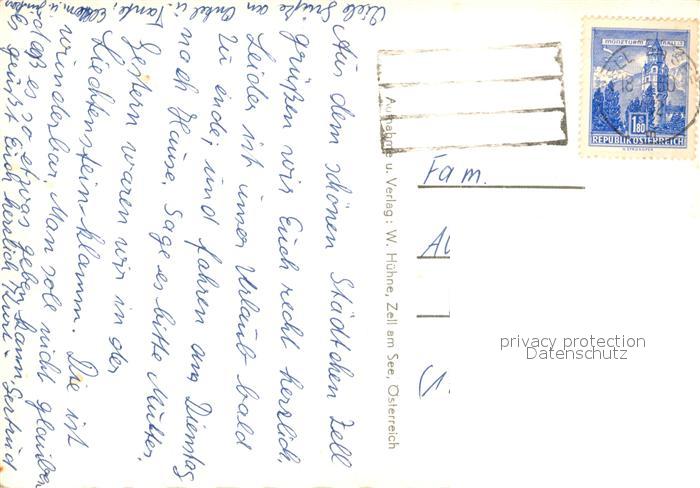 Viele Grüße an Onkel u. Tante,
Aus dem schönen Städtchen Zell
grüßen wir Euch recht herzlich.
Leider ist unser Urlaub bald
zu ende, und fahren am Dienstag
nach Hause. Sage es bitte Mutter.
Gestern waren wir in der
Liechtensteinklamm. Die ist
wunderbar. Man sole nicht glauben
daß es so etwas geben kann.
Es grüßt Euch herzlich Kurt u. Gertrud
Aufnahme u. Verlag: W. Hühne, Zell am See, Österreich
Fam.
MÜNZTURM HALL I. T.
1.80
REPUBLIK ÖSTERREICH
privacy protection
Datenschutz